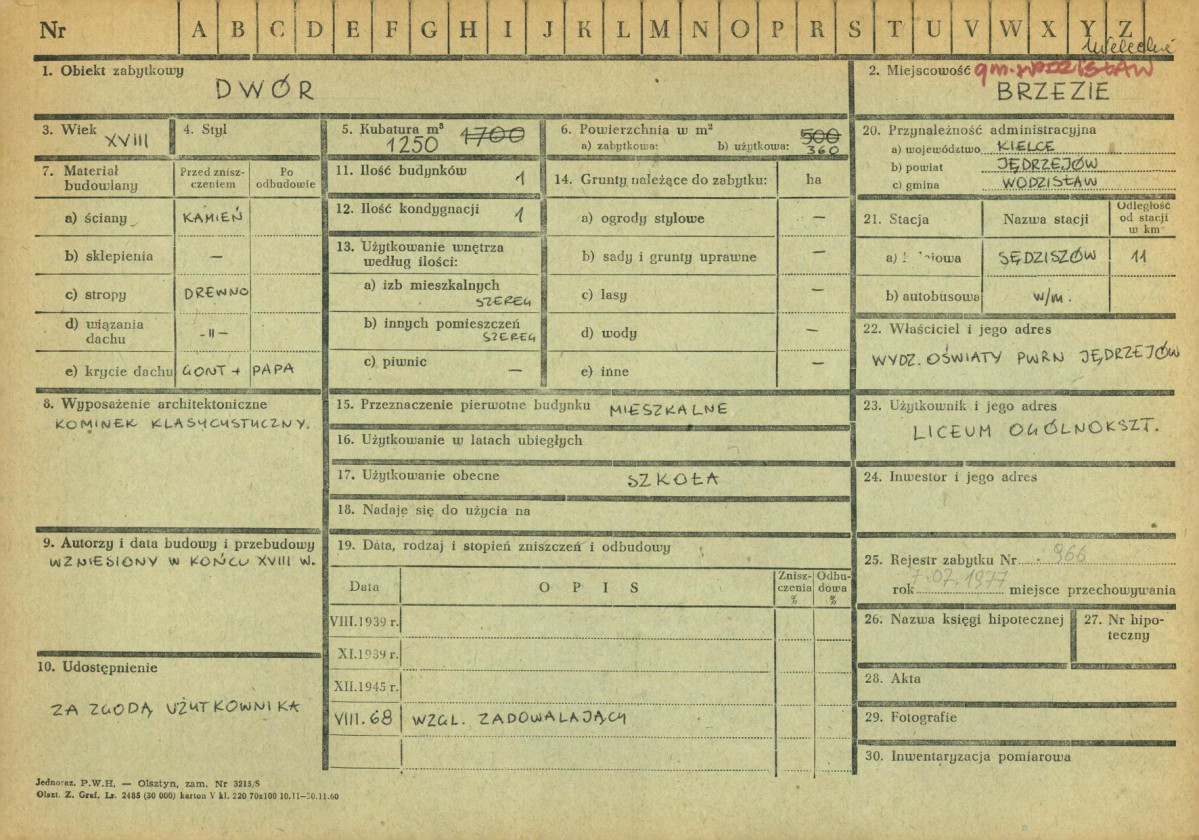 Nr A B C D E F G H I J K L M N O P R S T U V W X Y Z
1. Obiekt zabytkowy
DWÓR
2. Miejscowość gm. WODZISŁAW
BRZEZIE
3. Wiek
XVIII
4. Styl
5. Kubatura m³ 1700
1250
6. Powierzchnia w m² 500
a) zabytkowa: b) użytkowa: 360
7. Materiał budowlany
Przed zniszczeniem
Po odbudowie
a) ściany KAMIEŃ
b) sklepienia —
c) stropy DREWNO
d) wiązania dachu -〃-
e) krycie dachu GONT + PAPA
8. Wyposażenie architektoniczne
KOMINEK KLASYCYSTYCZNY.
9. Autorzy i data budowy i przebudowy
WZNIESIONY W KOŃCU XVIII W.
10. Udostępnienie
ZA ZGODĄ UŻYTKOWNIKA
11. Ilość budynków 1
12. Ilość kondygnacji 1
13. Użytkowanie wnętrza
według ilości:
a) izb mieszkalnych
SZEREG
b) innych pomieszczeń
SZEREG
c) piwnic —
14. Grunty należące do zabytku: ha
a) ogrody stylowe —
b) sady i grunty uprawne —
c) lasy —
d) wody —
e) inne —
15. Przeznaczenie pierwotne budynku MIESZKALNE
16. Użytkowanie w latach ubiegłych
17. Użytkowanie obecne SZKOŁA
18. Nadaje się do użycia na
19. Data, rodzaj i stopień zniszczeń i odbudowy
Data OPIS Zniszczenia % Odbudowa %
VIII.1939 r.
XI.1939 r.
XII.1945 r.
VIII.68 WZGL. ZADOWALAJĄCY
20. Przynależność administracyjna
a) województwo KIELCE
b) powiat JĘDRZEJÓW
c) gmina WODZISŁAW
21. Stacja Nazwa stacji Odległość od stacji w km
a) SĘDZISZÓW 11
b) autobusowa w/m.
22. Właściciel i jego adres
WYDZ. OŚWIATY PWRN JĘDRZEJÓW
23. Użytkownik i jego adres
LICEUM OGÓLNOKSZT.
24. Inwestor i jego adres
25. Rejestr zabytku Nr 966
rok 7.02.1977 miejsce przechowywania
26. Nazwa księgi hipotecznej
27. Nr hipoteczny
28. Akta
29. Fotografie
30. Inwentaryzacja pomiarowa
Jednoraz. P.W.H. — Olsztyn, zam. Nr 3215/S
Olszt. Z. Graf. Lz. 2485 (30 000) karton V kl. 220 70x100 10.11—30.11.60